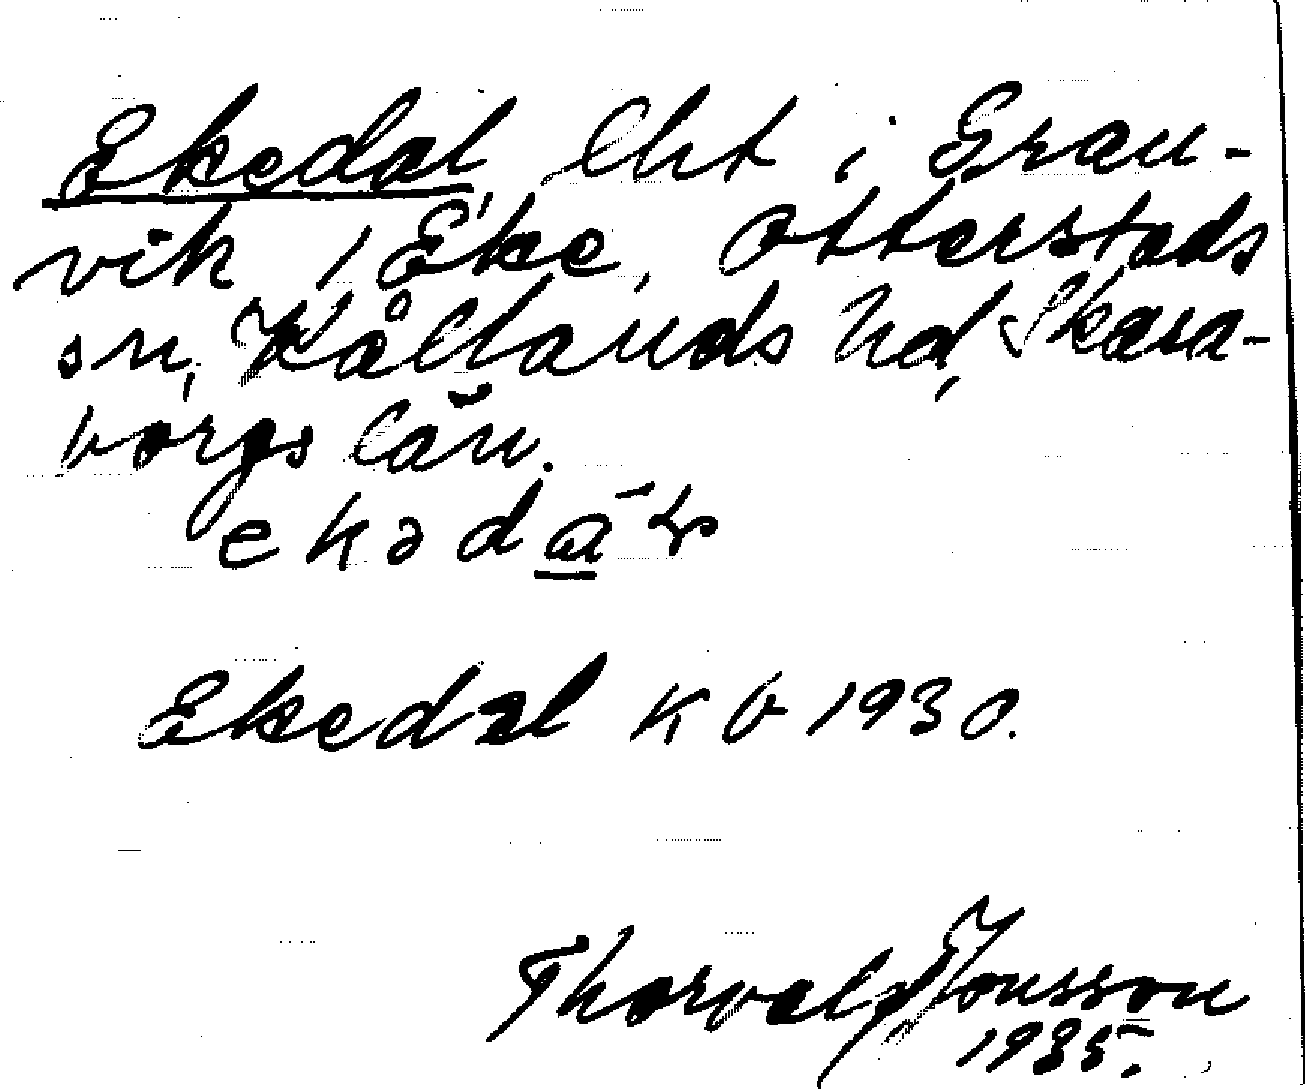 Ekedal, lht i Gran-
vik, Eke, Otterstads
sn, Kållands hd, Skara-
borgs län.
ekədā
Ekedal Kb 1930.
Thorvald Jonsson
1935.